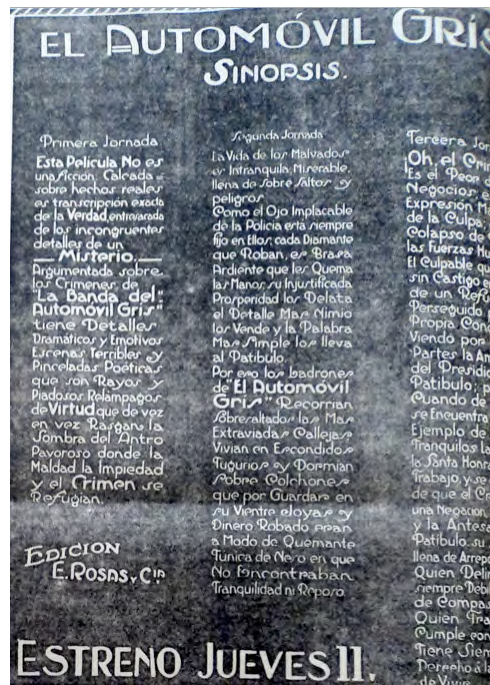 EL AUTOMÓVIL GRÍS
SINOPSIS.
Primera Jornada
Esta Película No es
una ficción: Calcada
sobre hechos reales
es transcripción exacta
de la Verdad, entresacada
de los incongruentes
detalles de un
Misterio.
Argumentada sobre
los Crimenes, de
"La Banda del
Automóvil Gris"
tiene Detalles
Dramáticos y Emotivos
Escenas Terribles y
Pinceladas Poéticas
que son Rayos y
Piadosos Relampagos
de Virtud que de vez
en vez Rasgan la
Sombra del Antro
Pavoroso donde la
Maldad la Impiedad
y el Crimen se
Refugian.
EDICION
E. ROSAS, y Cía
Segunda Jornada
La Vida de los Malvados
es Intranquila, Miserable,
llena de Sobre Saltos y
peligros
Como el Ojo Implacable
de la Policia esta siempre
fijo en Ellos; cada Diamante
que Roban, es Brasa
Ardiente que les Quema
las Manos; su Injustificada
Prosperidad los Delata
el Detalle Mas Nimio
los Vende y la Palabra
Mas Simple los lleva
al Patibulo.
Por eso los ladrones
de "El Automóvil
Gris" Recorrian
Sobresaltados las Mas
Extraviadas Callejas
Vivian en Escondidos
Tugurios y Dormian
Sobre Colchones
que por Guardar en
su Vientre eloyas y
Dinero Robado eran
a Modo de Quemante
Tunica de Neso en que
No Encontraban
Tranquilidad ni Reposo
Tercera Jor
¡Oh, el Crim
Es el Peor d
Negocios
Expresión M
de la Culpa,
Colapso de
las fuerzas Hu
El Culpable qu
sin Castigo e
de un Refu
Perseguido p
Propia Con
Viendo por
Partes la Am
del Presidio
Patibulo; p
Cuando de
se Encuentra
Ejemplo de
Tranquilos la
la Santa Honra
Trabajo, y se
de que el Cr
una Negacion
y la Antesa
Patibulo su
llena de Arrepe
Quien Delin
siempre Debi
de Compas
Quien Tra
Cumple con
Tiene Siem
Derecho á la
de Vivir
ESTRENO JUEVES 11.